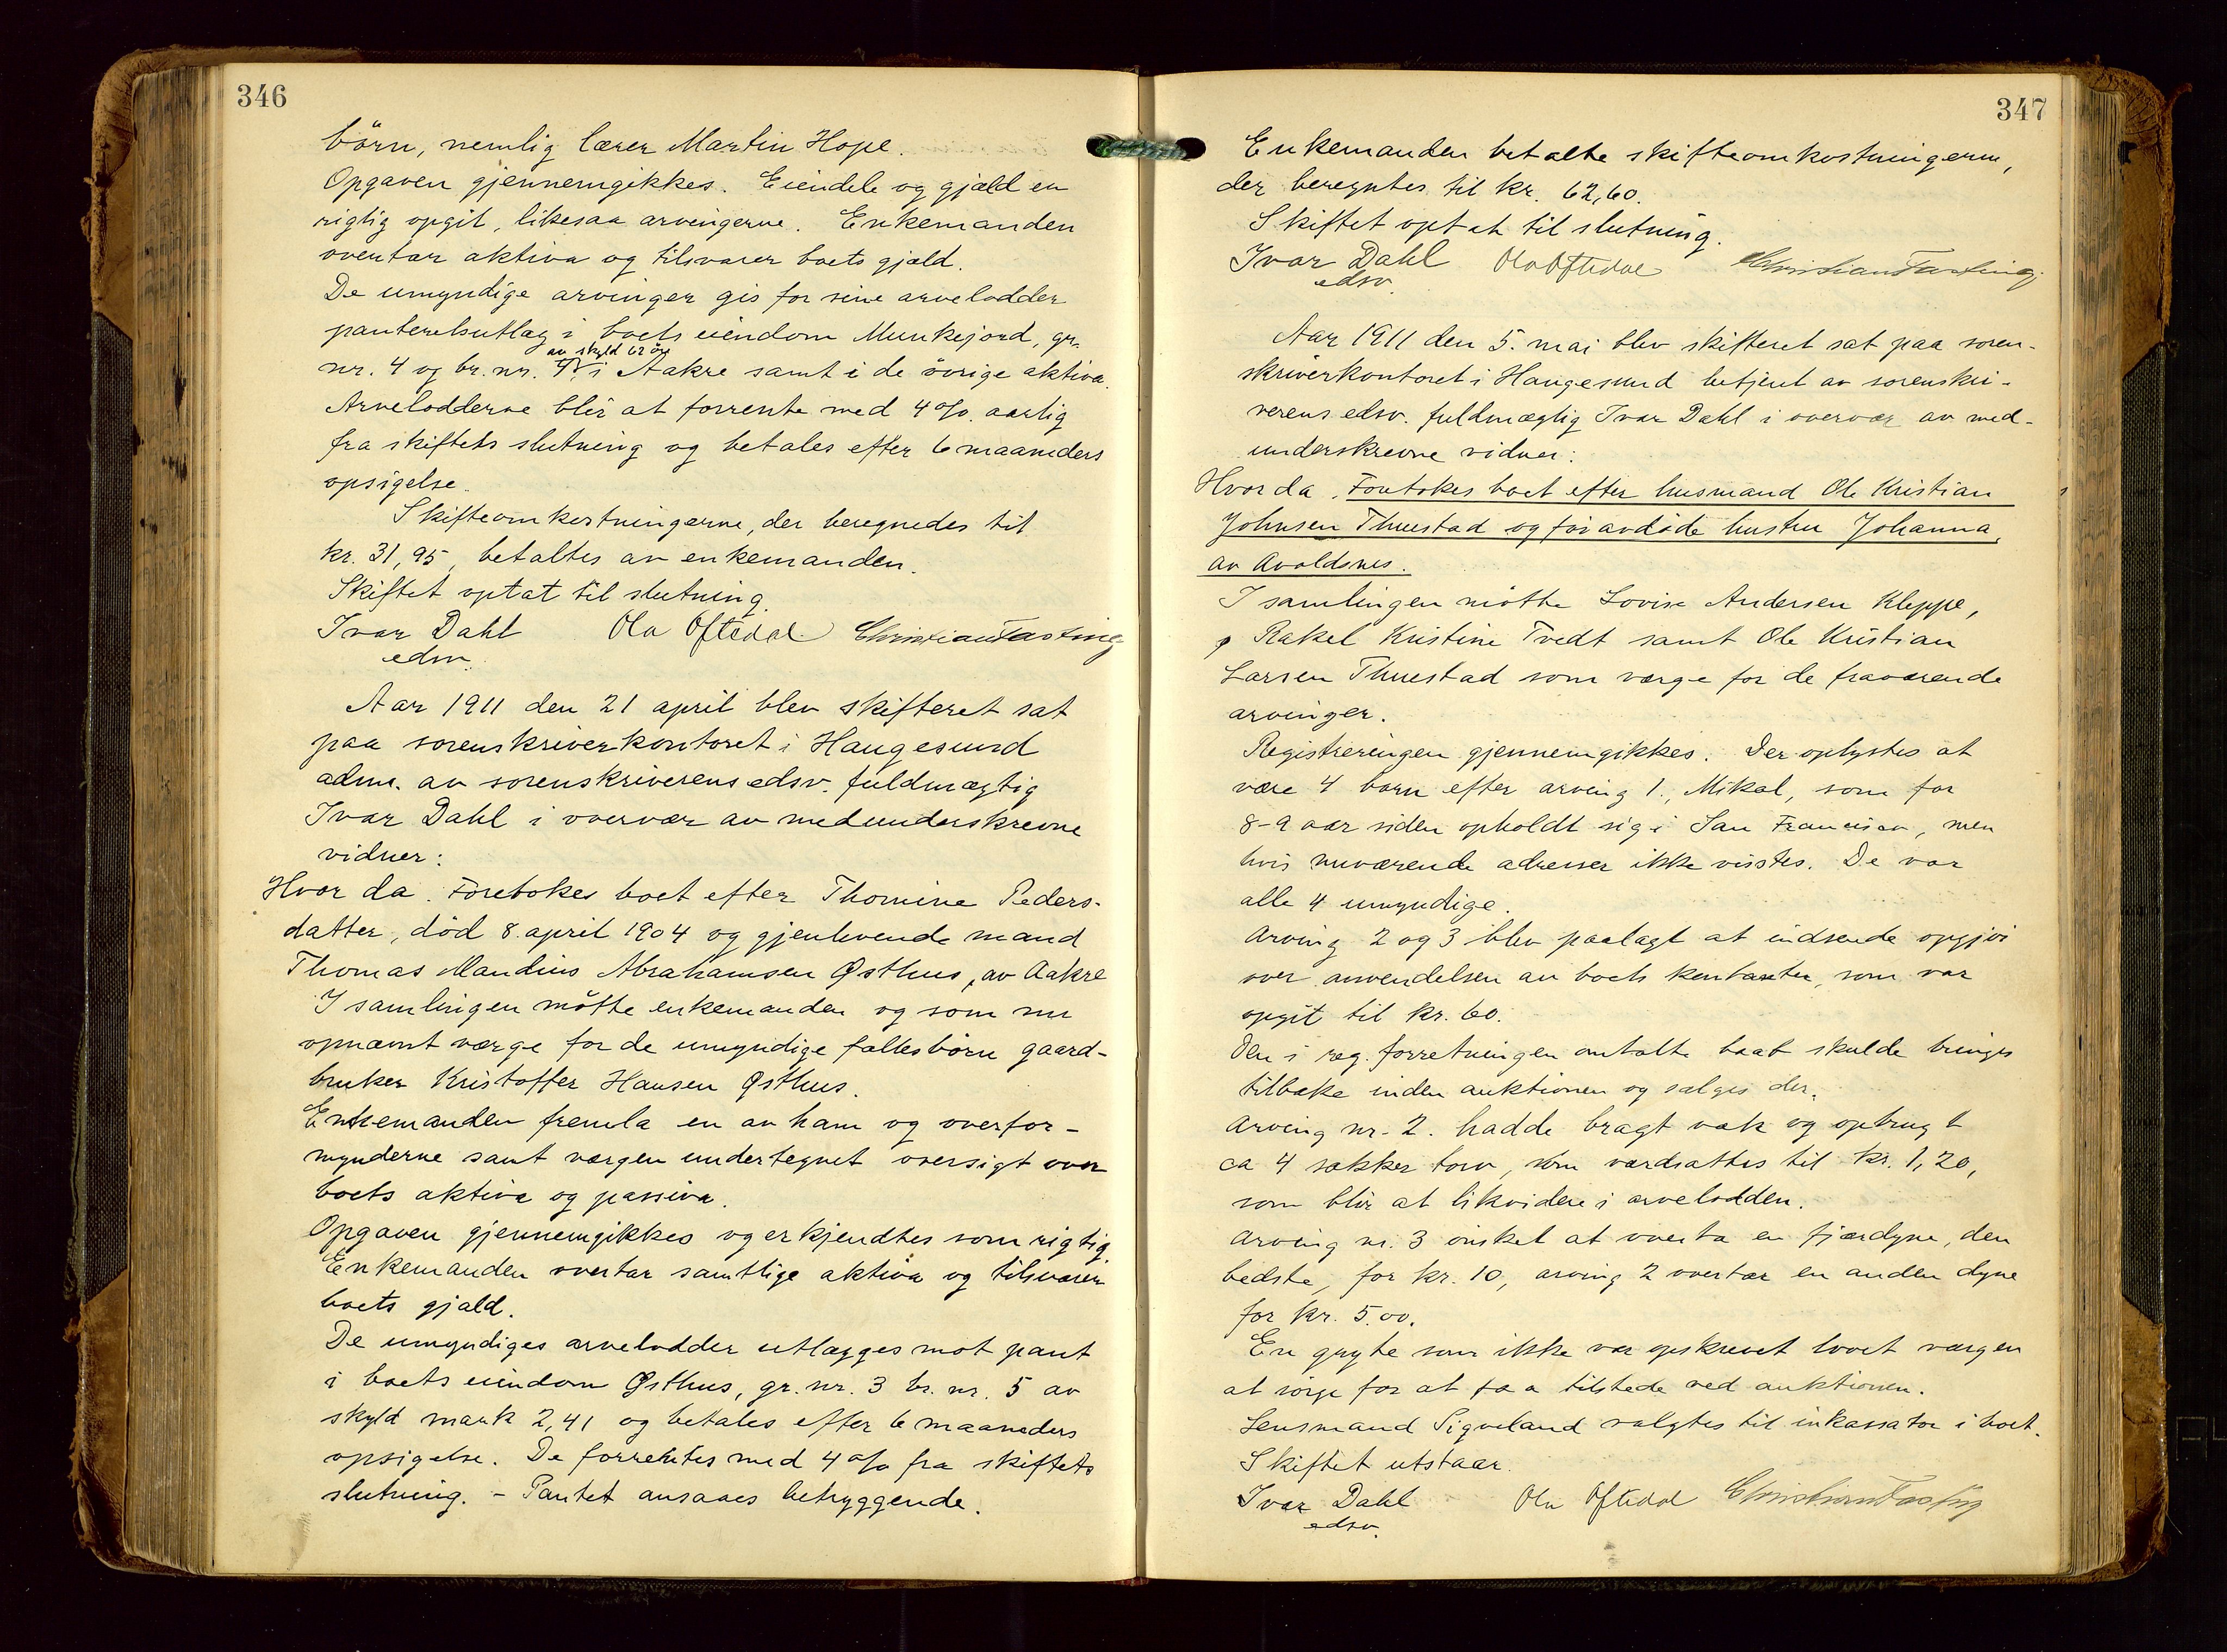 346
börn, nemlig lærer Martin Hope.
Opgaven gjennemgikkes. Eiendele og gjæld er
rigtig opgit, likesaa arvingerne. Enkemanden
overtar aktiva og tilsvarer boets gjæld.
De umyndige arvinger gis for sine arvelodder
panteretsutlæg i boets eiendom Munkejord, gr.
av skyld 62 öre
nr. 4 og br. nr. i Aakre samt i de övrige aktiva.
Arvelodderne blir at forrente med 4 % aarlig
fra skiftets slutning og betales efter 6 maaneders
opsigelse.
Skifteomkostningerne, der beregnedes til
kr. 31,95, betaltes av enkemanden.
Skiftet optat til slutning.
Ivar Dahl Ola Oftedal Christian Tasting
edsv.
Aar 1911 den 21 april blev skifteret sat
paa sorenskriverkontoret i Haugesund
adm. av sorenskriverens edsv. fuldmægtig
Ivar Dahl i overvær av medunderskrevne
vidner:
Hvor da. Foretokes boet efter Thomine Peders-
datter, död 8. april 1904 og gjenlevende mand
Thomas Mandius Abrahamsen Østhus, av Aakre
I samlingen mötte enkemanden og som nu
opnævnt værge for de umyndige fællesbörn gaard-
bruker Kristoffer Hansen Østhus.
Enkemanden fremla en av ham og overfor-
mynderne samt værgen undertegnet oversigt over
boets aktiva og passiva.
Opgaven gjennemgikkes og erkjendtes som rigtig.
Enkemanden overtar samtlige aktiva og tilsvarer
boets gjæld.
De umyndiges arvelodder utlægges mot pant
i boets eiendom Østhus, gr. nr. 3 br. nr. 5 av
skyld mark 2,41 og betales efter 6 maaneders
opsigelse. De forrentes med 4 % fra skiftets
slutning. - Pantet ansaaes betryggende.
347
Enkemanden betalte skifteomkostningerne,
der beregntes til kr. 62,60.
Skiftet optat til slutning.
Ivar Dahl Ola Oftedal Christian Tasting
edsv.
Aar 1911 den 5. mai blev skifteret sat paa soren-
skriverkontoret i Haugesund betjent av sorenskri-
verens edsv. fuldmægtig Ivar Dahl i overvær av med-
underskrevne vidner:
Hvor da. Foretokes boet efter husmand Ole Kristian
Johnsen Thuestad og föravdöde hustru Johanna,
av Avaldsnes.
I samlingen mötte Lovise Andersen Kleppe,
Rakel Kristine Tvedt samt Ole Kristian
Larsen Thuestad som værge for de fraværende
arvinger.
Registreringen gjennemgikkes. Der oplystes at
være 4 barn efter arving 1., Mikal, som for
8-9 aar siden opholdt sig i San Francisco, men
hvis nuværende adresser ikke visstes. De var
alle 4 umyndige.
Arving 2 og 3 blev paalagt at indsende opgjör
over anvendelsen av boets kontanter, som var
opgit til kr. 60.
Den i reg. forretningen omtalte baat skulde bringes
tilbake inden auktionen og sælges der.
Arving nr. 2. hadde bragt væk og opbrugt
ca 4 sækker torv, som værdsattes til kr. 1,20,
som blir at likvidere i arvelodden.
Arving nr. 3 önsket at overta en fjærdyne, den
bedste, for kr. 10, arving 2 overtar en anden dyne
for kr. 5.00.
En gryte som ikke var opskrevet lovet værgen
at sörge for at faa tilstede ved auktionen.
Lensmand Sigveland valgtes til inkassator i boet.
Skiftet utstaar.
Ivar Dahl Ola Oftedal Christian Tasting
edsv.